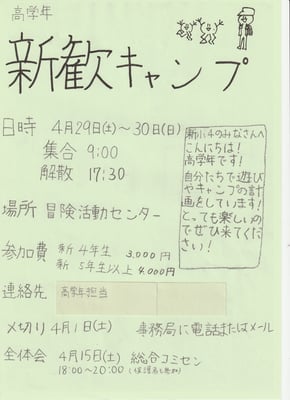 高学年
新歓キャンプ
日時 4月29日(土)〜30日(日)
集合 9:00
解散 17:30
新小4のみなさんへ
こんにちは!
高学年です!
自分たちで遊び
やキャンプの計
画をしています!
とっても楽しいの
でぜひ来てくだ
さい!
場所 冒険活動センター
参加費 新4年生 3,000円
新5年生以上 4,000円
連絡先 高学年担当
〆切り 4月1日(土) 事務局に電話またはメール
全体会 4月15日(土) 総合コミセン
18:00〜20:00(保護者も参加)